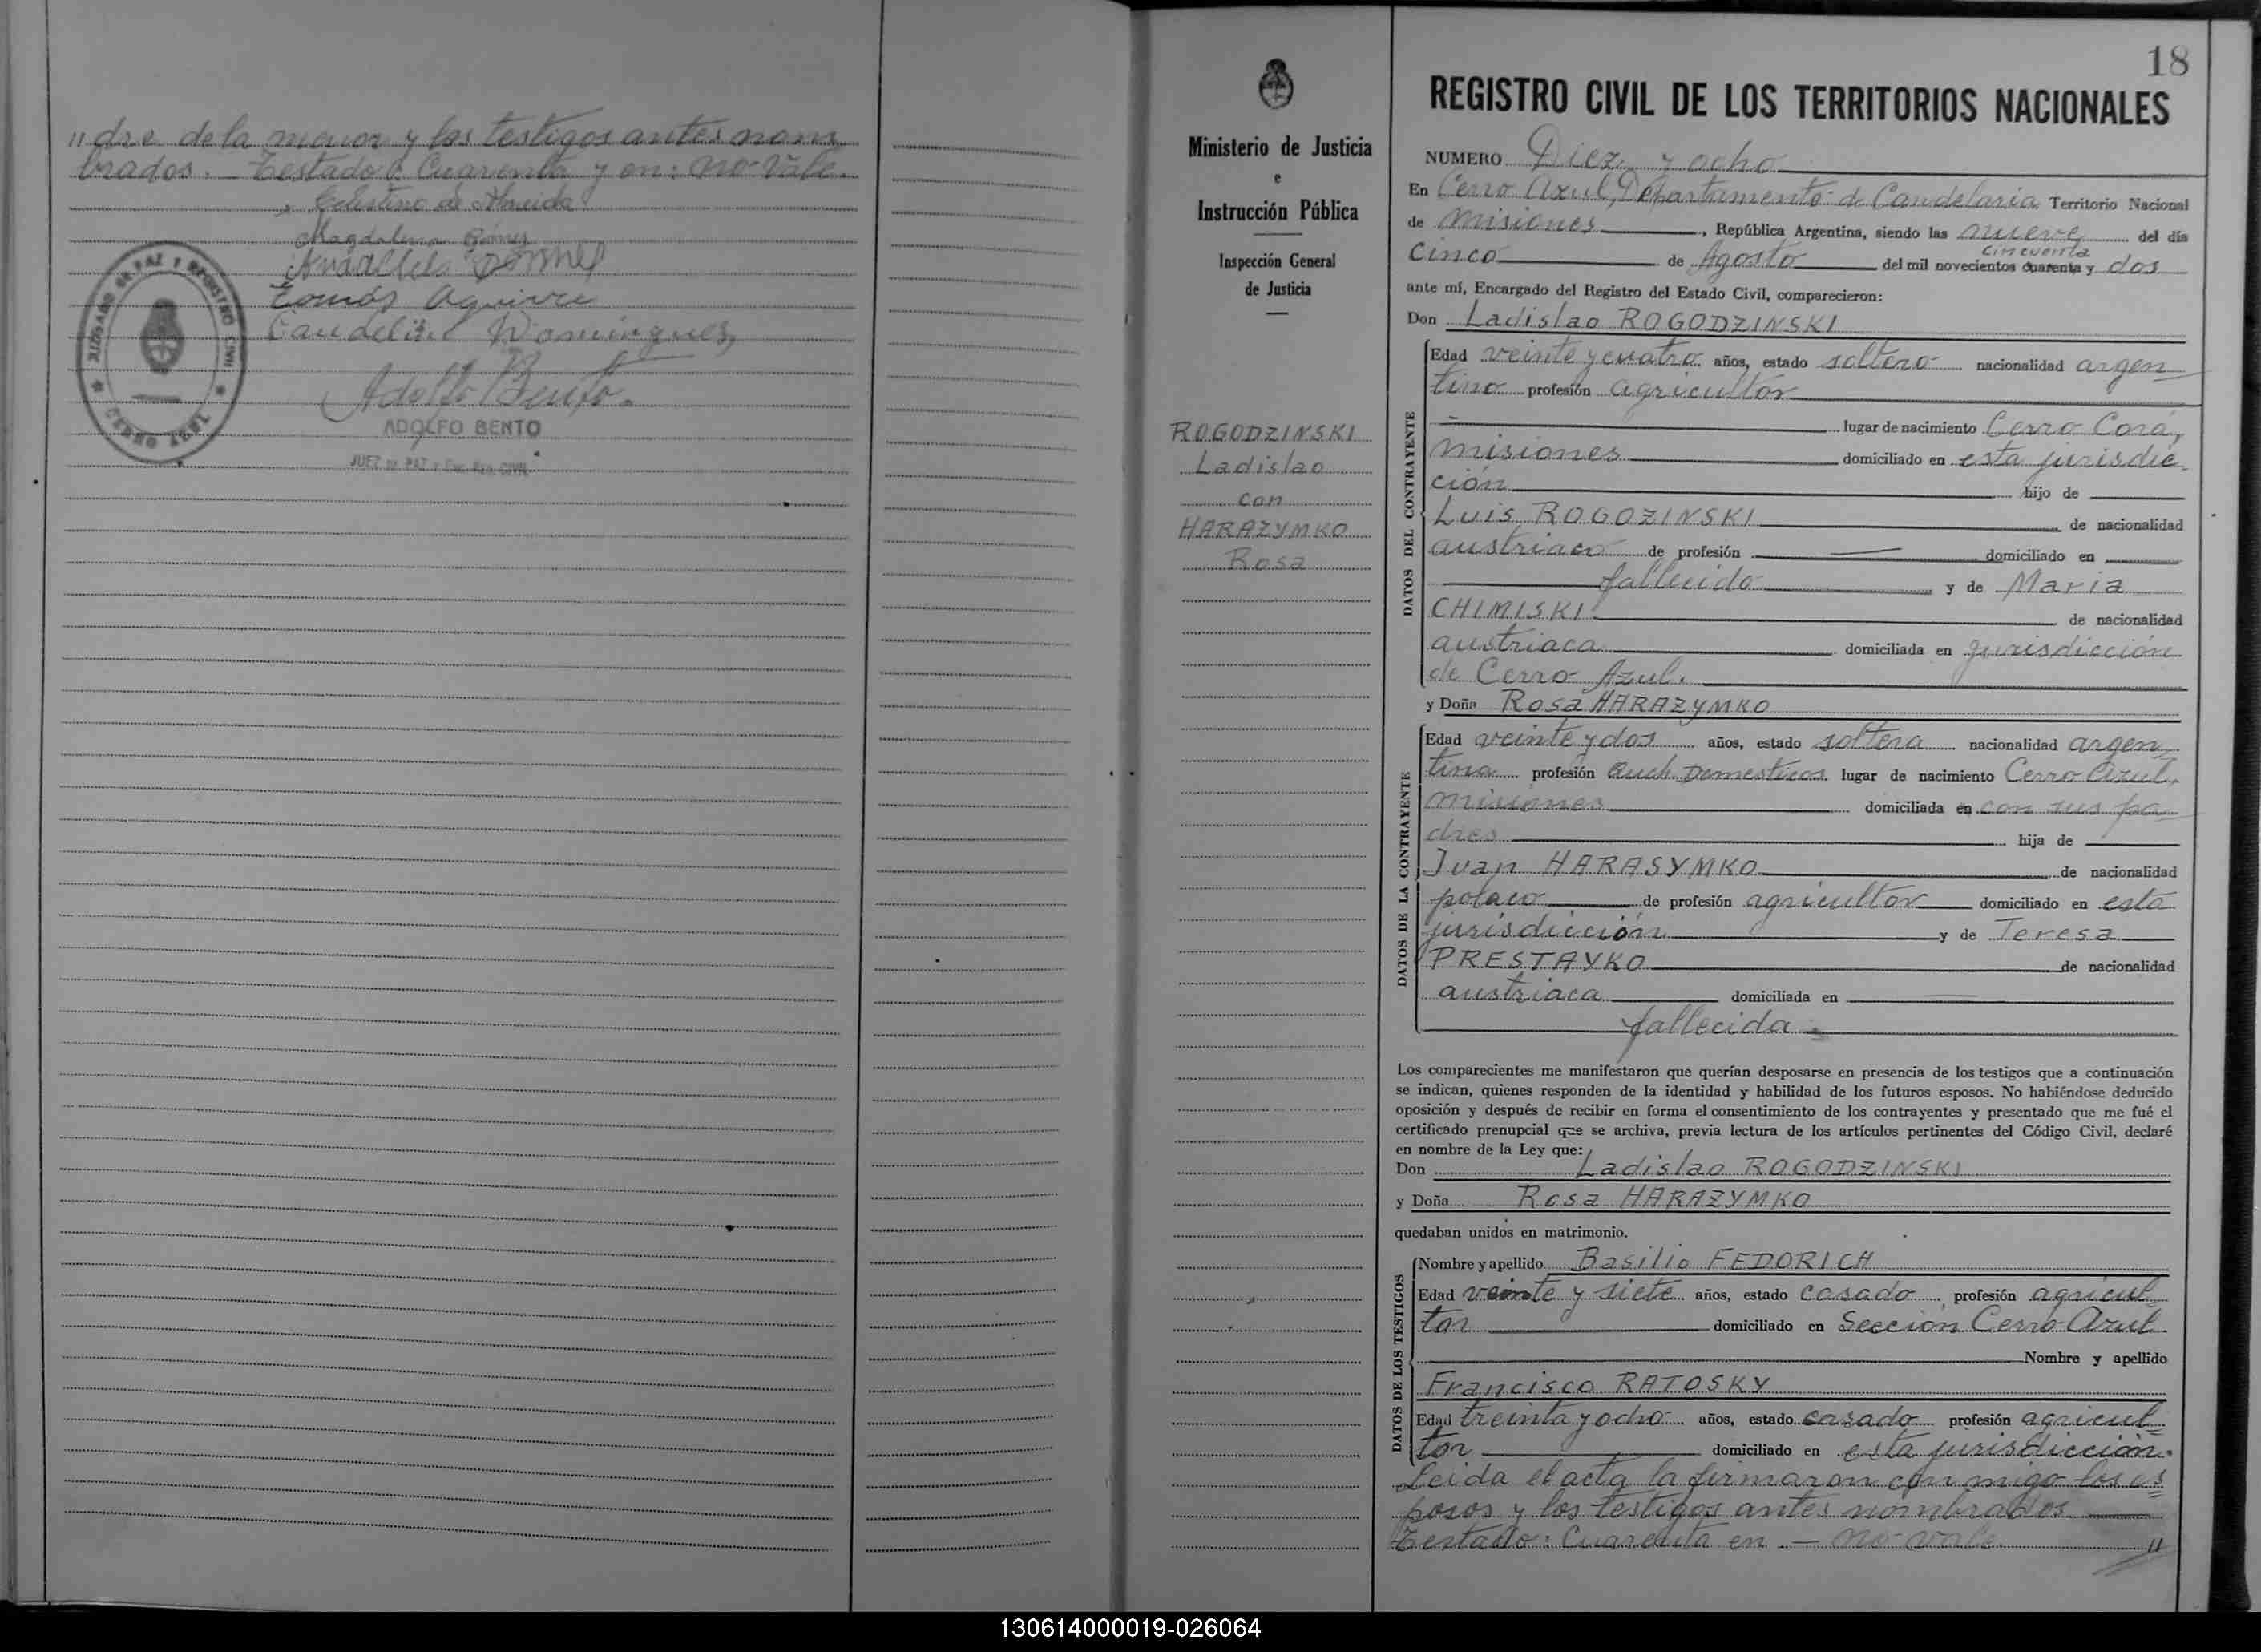 " dre de la menor y los testigos antes nom
brados. — Testado: Cuarenta y en: no vale.
Celestino de Almeida
Magdalena Gómez
Tomás Aguirre
Candelino Domingues
Adolfo Bento.
ADOLFO BENTO
JUEZ DE PAZ Y ENC. REG. CIVIL
JUZGADO DE PAZ Y REGISTRO CIVIL
★ CERRO AZUL ★
18
Ministerio de Justicia
e
Instrucción Pública
Inspección General
de Justicia
ROGODZINSKI
Ladislao
con
HARAZYMKO
Rosa
REGISTRO CIVIL DE LOS TERRITORIOS NACIONALES
NUMERO Diez y ocho
En Cerro Azul, Departamento de Candelaria Territorio Nacional
de Misiones, República Argentina, siendo las nueve del día
cincuenta
Cinco de Agosto del mil novecientos cuarenta y dos
ante mí, Encargado del Registro del Estado Civil, comparecieron:
Don Ladislao ROGODZINSKI
DATOS DEL CONTRAYENTE
Edad veinte y cuatro años, estado soltero nacionalidad argen
tino profesión agricultor
lugar de nacimiento Cerro Corá,
Misiones domiciliado en esta jurisdic
ción hijo de
Luis ROGOZINSKI de nacionalidad
austriaco de profesión — domiciliado en
fallecido y de Maria
CHIMISKI de nacionalidad
austriaca domiciliada en jurisdicción
de Cerro Azul.
y Doña Rosa HARAZYMKO
DATOS DE LA CONTRAYENTE
Edad veinte y dos años, estado soltera nacionalidad argen
tina profesión Queh. Domesticos lugar de nacimiento Cerro Azul,
Misiones domiciliada en con sus pa
dres hija de
Juan HARASYMKO de nacionalidad
polaco de profesión agricultor domiciliado en esta
jurisdicción y de Teresa
PRESTAYKO de nacionalidad
austriaca domiciliada en —
fallecida
Los comparecientes me manifestaron que querían desposarse en presencia de los testigos que a continuación
se indican, quienes responden de la identidad y habilidad de los futuros esposos. No habiéndose deducido
oposición y después de recibir en forma el consentimiento de los contrayentes y presentado que me fué el
certificado prenupcial que se archiva, previa lectura de los artículos pertinentes del Código Civil, declaré
en nombre de la Ley que:
Don Ladislao ROGODZINSKI
y Doña Rosa HARAZYMKO
quedaban unidos en matrimonio.
DATOS DE LOS TESTIGOS
Nombre y apellido Basilio FEDORICH
Edad veinte y siete años, estado casado, profesión agricul
tor domiciliado en Sección Cerro Azul
Nombre y apellido
Francisco RATOSKY
Edad treinta y ocho años, estado casado profesión agricul
tor domiciliado en esta jurisdicción.
Leida el acta la firmaron conmigo los es
posos y los testigos antes nombrados
Testado: Cuarenta en — no vale "
130614000019-026064